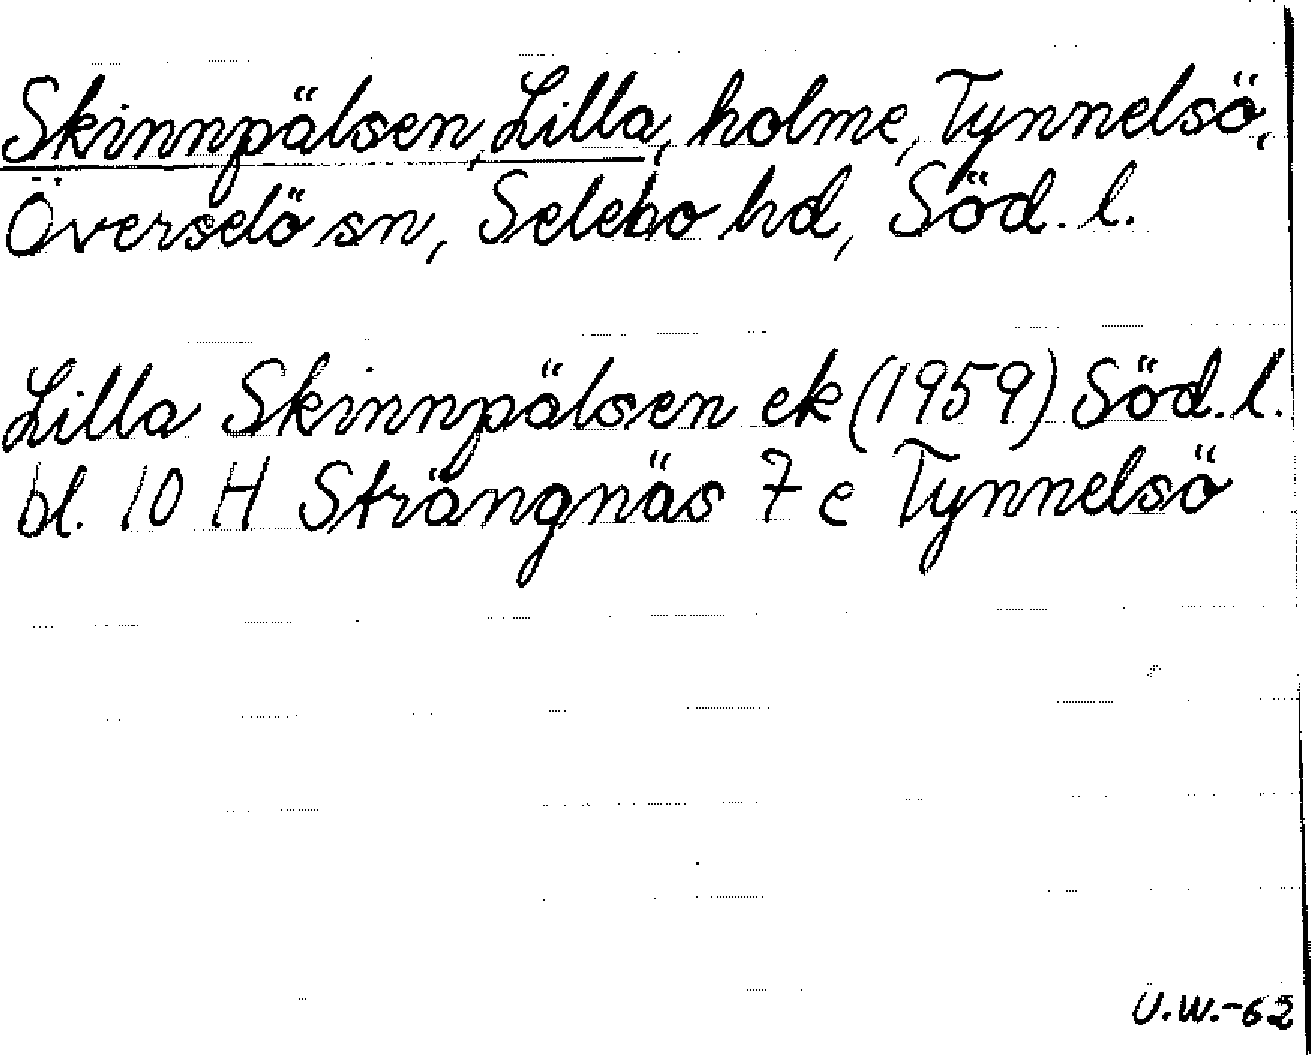 Skinnpälsen, Lilla, holme, Tynnelsö,
Överselö sn, Selebo hd, Söd. l.
Lilla Skinnpälsen ek (1959) Söd. l.
bl. 10 H Strängnäs 7 e Tynnelsö
U.W.-62